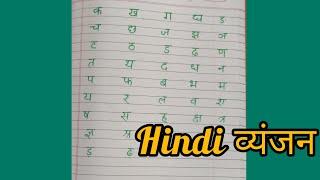 क ख ग घ ङ
च छ ज झ ञ
ट ठ ड ढ ण
त थ द ध न
प फ ब भ म
य र ल व श
ष स ह क्ष त्र
ज्ञ श्र
ड़ ढ़
Hindi व्यंजन